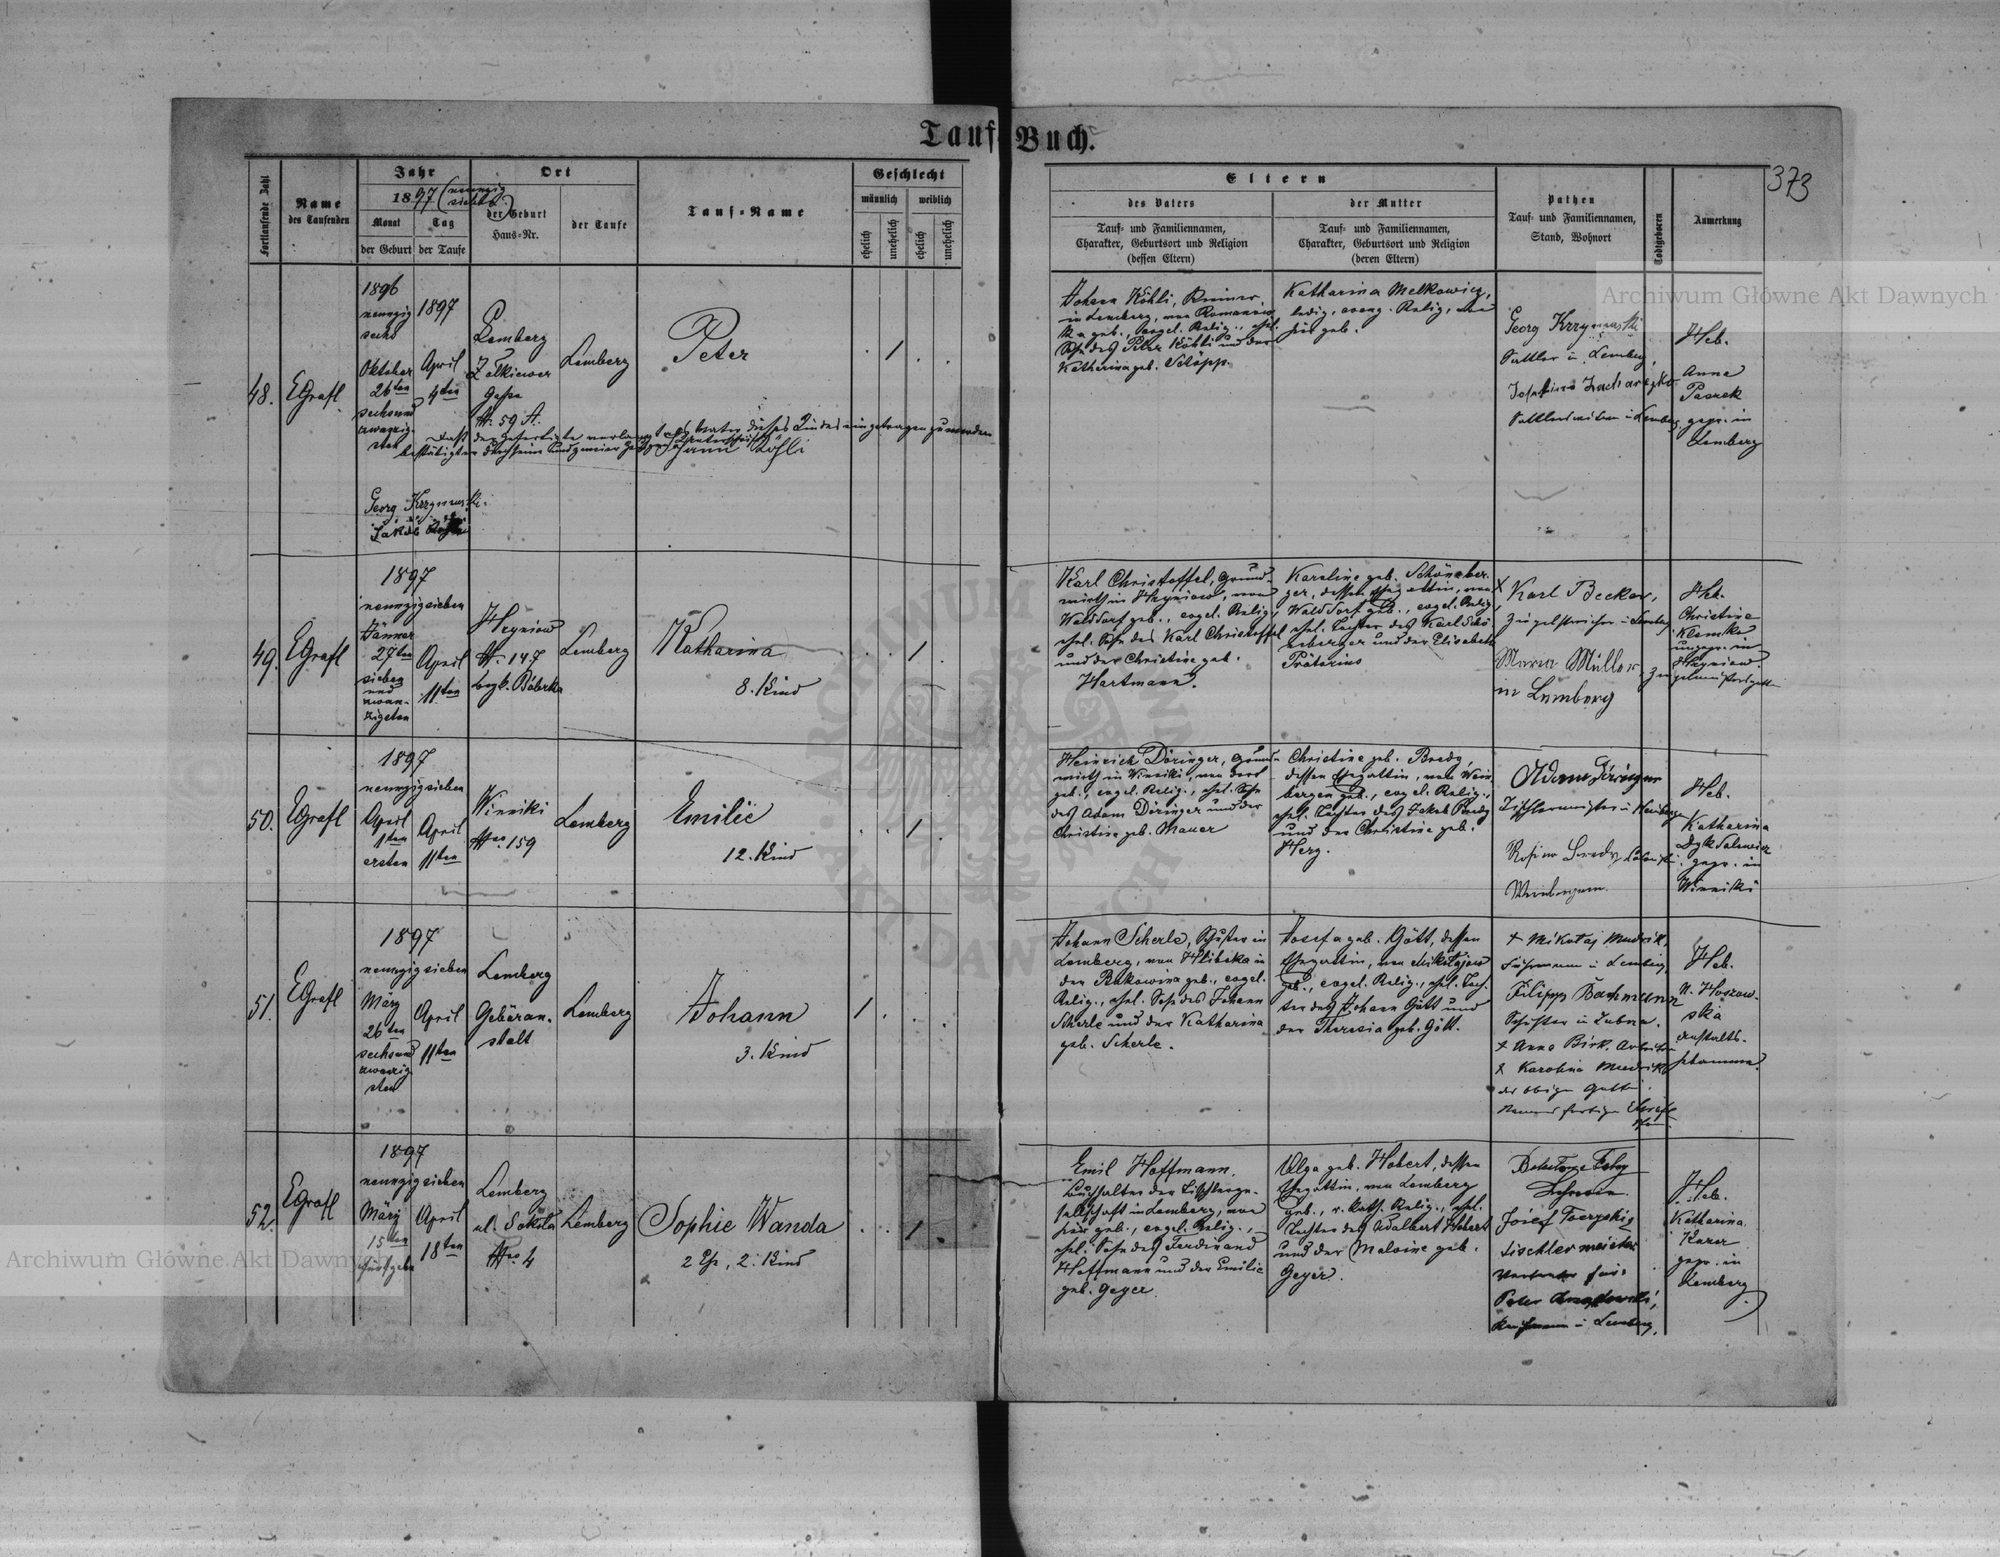 Tauf-Buch.
373
Fortlaufende Zahl
Name
des Taufenden
Jahr
1897 (neunzig
sieben)
Monat
der Geburt
Tag
der Taufe
Ort
der Geburt
Haus-Nr.
der Taufe
Tauf-Name
Geschlecht
männlich
weiblich
ehelich
unehelich
ehelich
unehelich
Eltern
des Vaters
Tauf- und Familiennamen,
Charakter, Geburtsort und Religion
(dessen Eltern)
der Mutter
Tauf- und Familiennamen,
Charakter, Geburtsort und Religion
(deren Eltern)
Pathen
Tauf- und Familiennamen,
Stand, Wohnort
Todtgeboren
Anmerkung
48.
EGrafl
1896
neunzig
sechs
Oktober
26ten
sechsund
zwanzig-
sten
1897
April
4ten
Lemberg
Zolkiewer
Gasse
N. 59 A.
Lemberg
Peter
Johann Köhli
Georg Krzynawski
Jakob
Johann Köhli, Riemer
in Lemberg, von Romanow-
ka geb., evgel. Relig., ehel.
Sohn des Peter Köhli und der
Katharina geb. Schöpp.
Katharina Melkowicz,
ledig, evang. Relig., von
hier geb.
Georg Krzynawski
Sattler in Lemberg,
Josefine
in Lemberg
Heb.
Anna
Pasrek
gepr. in
Lemberg
49.
EGrafl
1897
neunzigsieben
Jänner
27ten
sieben
und
zwan-
zigsten
April
11ten
Hryniow
N. 147
bezk. Bóbrka
Lemberg
Katharina
8. Kind
Karl Christoffel, Grund-
wirth in Hryniow, von
Walddorf geb., evgel. Relig.,
ehel. Sohn des Karl Christoffel
und der Christine geb.
Hartmann.
Karoline geb. Schöneber-
ger, dessen Ehegattin, von
Walddorf geb., evgel. Relig.,
ehel. Tochter des Karl Schö-
neberger und der Elisabeth
Prätorius
X Karl Becker,
in Lemberg
Maria Müller
in Lemberg
Heb.
Christine
Klemke
ungepr. in
Hryniow.
50.
EGrafl
1897
neunzigsieben
April
1ten
ersten
April
11ten
Winniki
Nro. 159
Lemberg
Emilie
12. Kind
Heinrich Döringer, Grund-
wirth in Winniki, von dort
geb., evgel. Relig., ehel. Sohn
des Adam Döringer und der
Christine geb. Mauer
Christine geb. Bredy,
dessen Ehegattin, von Wein-
bergen geb., evgel. Relig.,
ehel. Tochter des Jakob Bredy
und der Christine geb.
Herz.
Adam Döringer
Tischlermeister in
Rosina Bredy
Weinbergen.
Heb.
Katharina
gepr. in
Winniki
51.
EGrafl
1897
neunzigsieben
März
26ten
sechsund
zwanzig-
sten
April
11ten
Lemberg
Gebäran-
stalt
Lemberg
Johann
3. Kind
Johann Scherle, Schuster in
Lemberg, von Hliboka in
der Bukowina geb., evgel.
Relig., ehel. Sohn des Johann
Scherle und der Katharina
geb. Scherle.
Josefa geb. Gött, dessen
Ehegattin, von Mikołajow
geb., evgel. Relig., ehel. Toch-
ter des Johann Gött und
der Theresia geb. Gött.
+ Mikołaj Mudrik,
Fuhrmann in Lemberg,
Filipp Bachmann
Schuster in
+ Anna Birk,
X Karolina Mudrik
der obigen Gattin.
EGrafl
Heb.
N. Hoszow-
ska
Anstalts-
hebamme.
52.
EGrafl
1897
neunzigsieben
März
15ten
fünfzehn
April
18ten
Lemberg
ul. Sokoła
Nro. 4
Lemberg
Sophie Wanda
2 Ehe, 2. Kind
Emil Hoffmann,
Buchhalter der Tischlerge-
sellschaft in Lemberg, von
hier geb., evgel. Relig.,
ehel. Sohn des Ferdinand
Hoffmann und der Emilie
geb. Geyer
Olga geb. Hobert, dessen
Ehegattin, von Lemberg
geb., r. kath. Relig., ehel.
Tochter des Adalbert Hobert
und der Malvine geb.
Geyer.
Józef
Tischlermeister
Peter
in Lemberg,
Heb.
Katharina
Karer
gepr. in
Lemberg
Archiwum Główne Akt Dawnych
Archiwum Główne Akt Dawnych
ARCHIWUM GŁÓWNE AKT DAWNYCH